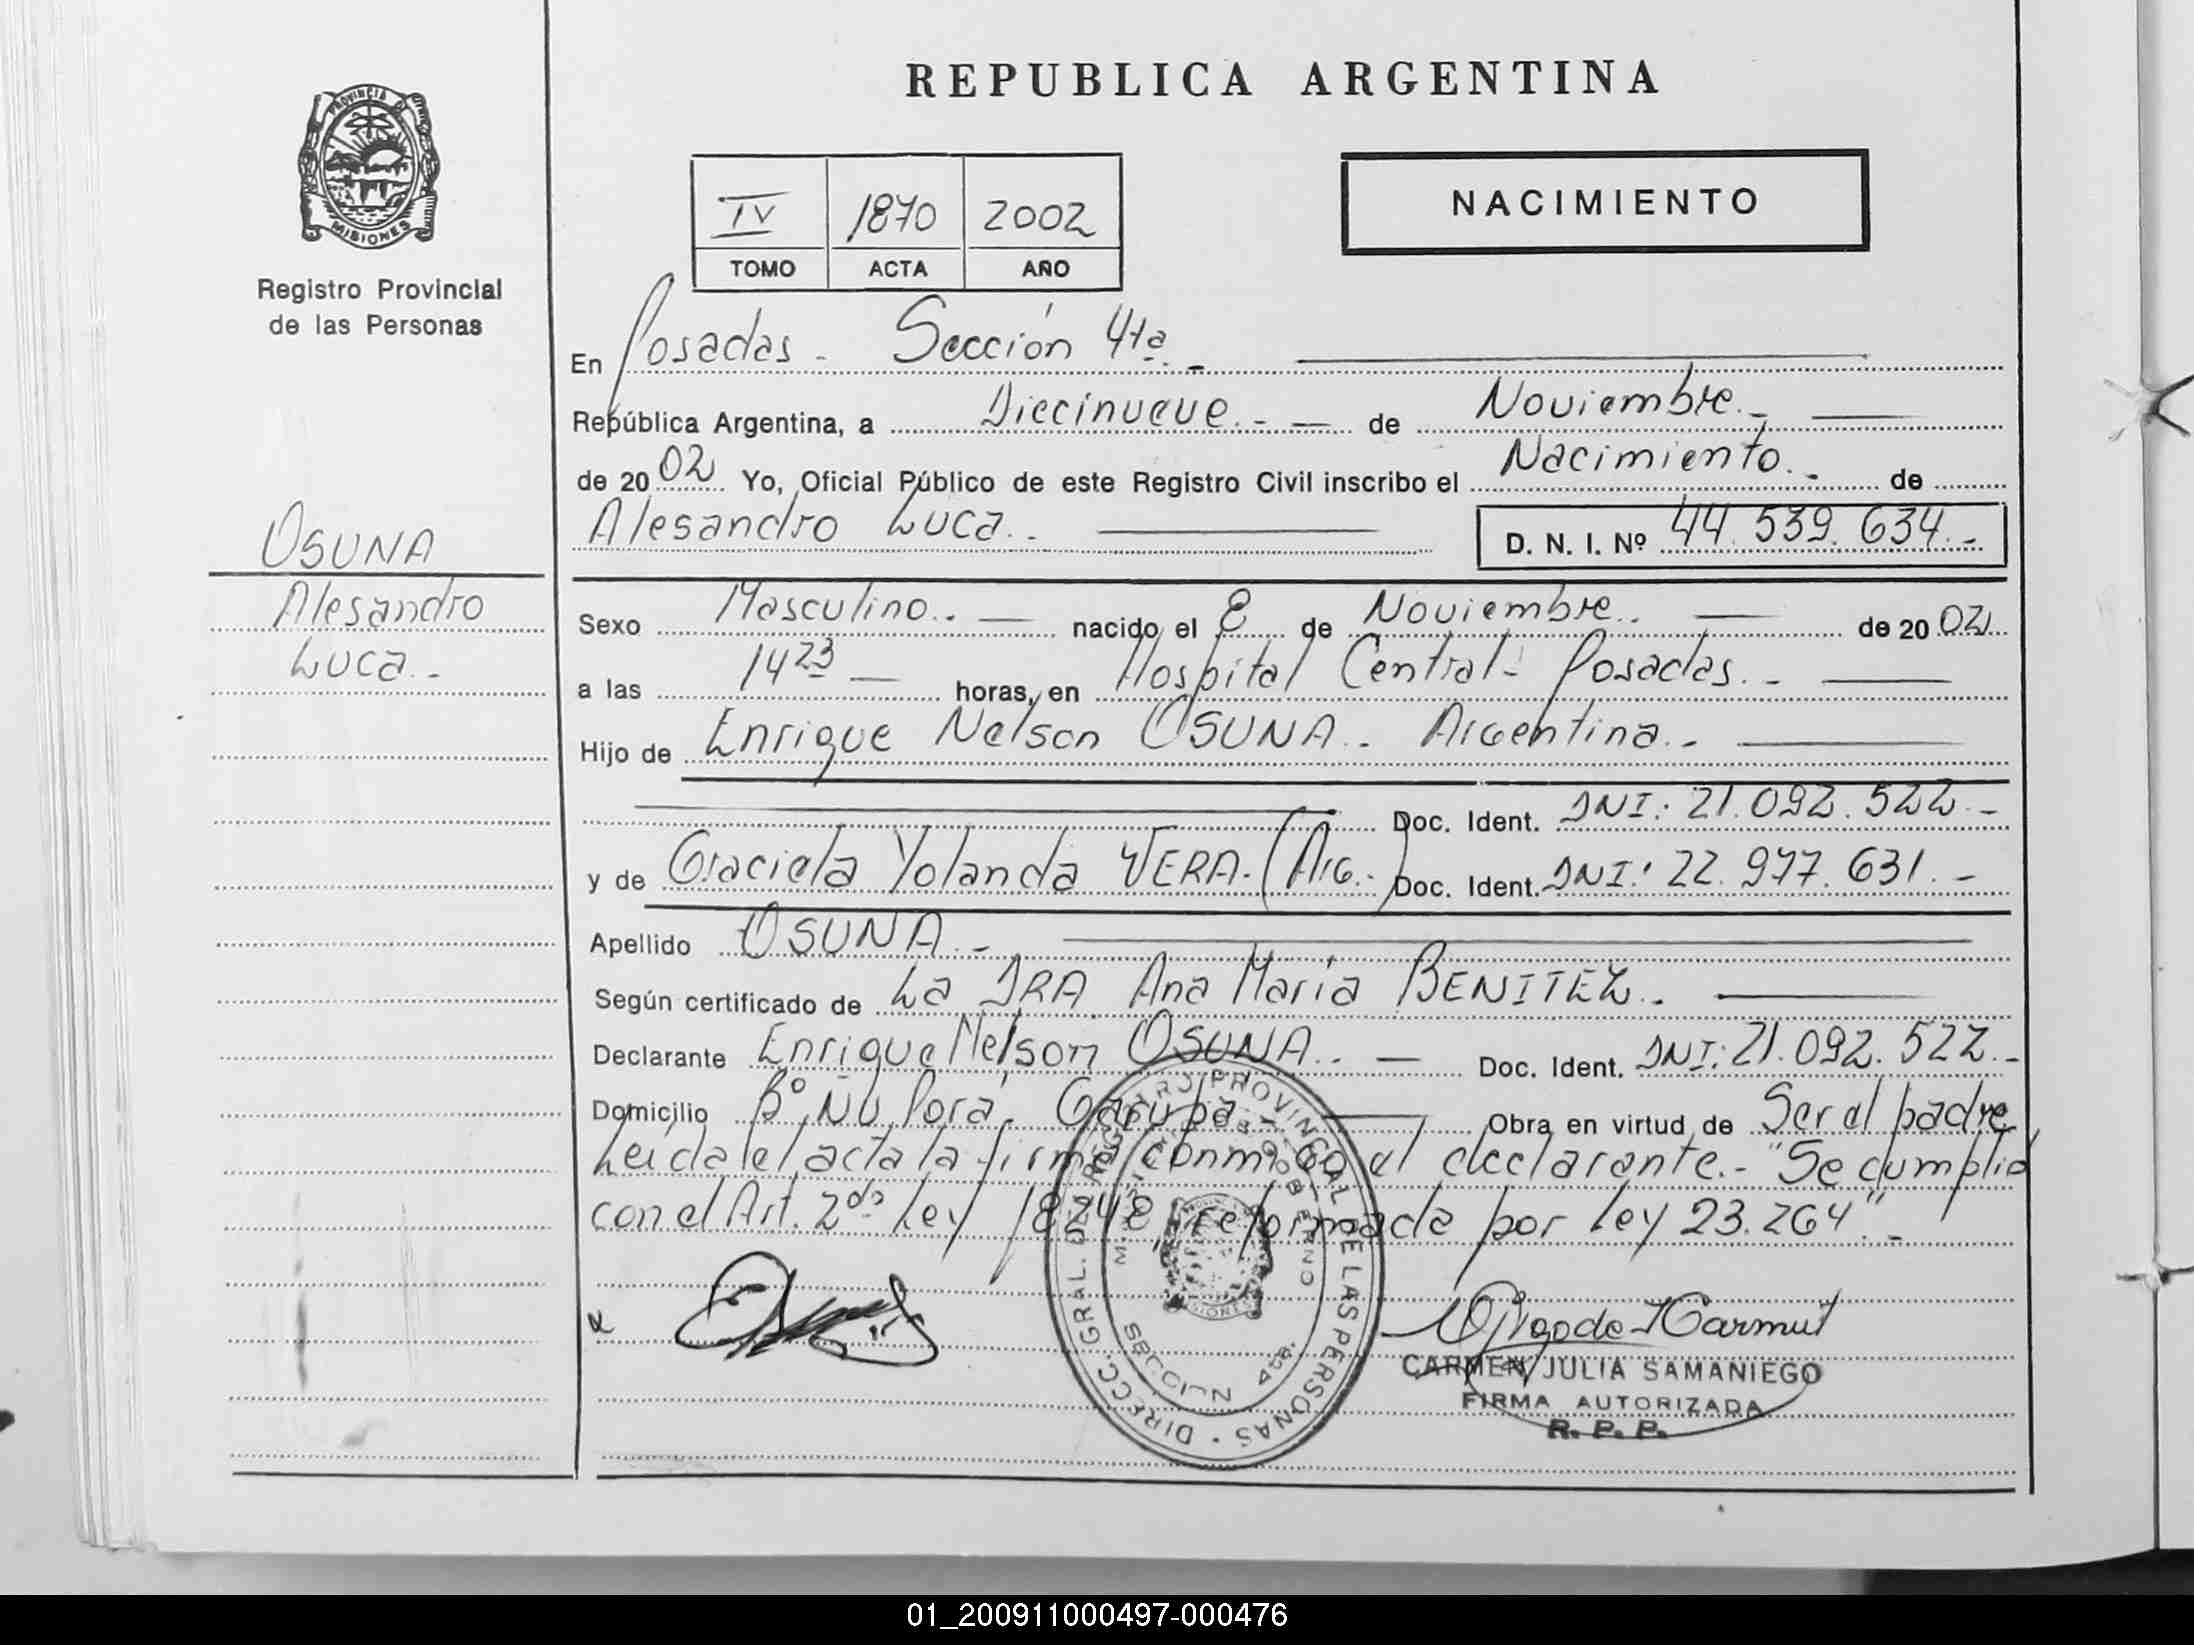 REPUBLICA ARGENTINA
PROVINCIA DE
MISIONES
Registro Provincial
de las Personas
NACIMIENTO
IV 1870 2002
TOMO ACTA AÑO
En Posadas - Sección 4ta. -
República Argentina, a Diecinueve. - de Noviembre. -
de 2002 Yo, Oficial Público de este Registro Civil inscribo el Nacimiento. - de
Alesandro Luca. - D. N. I. Nº 44.539.634. -
OSUNA
Alesandro
Luca. -
Sexo Masculino. - nacido el 8 de Noviembre. - de 2002
a las 14 23 horas, en Hospital Central - Posadas. -
Hijo de Enrique Nelson OSUNA. - Argentina. -
Doc. Ident. DNI: 21.092.522. -
y de Graciela Yolanda VERA. (Arg.) Doc. Ident. DNI: 22.977.631. -
Apellido OSUNA. -
Según certificado de La DRA Ana María BENITEZ. -
Declarante Enrique Nelson OSUNA. - Doc. Ident. DNI: 21.092.522. -
Domicilio Bº Ñu Porá. Garupá Obra en virtud de Ser el padre
Leída el acta la firma conmigo el declarante. - "Se cumplió
con el Art. 2do Ley 18248, reformada por Ley 23.264". -
DIRECC. GRAL. DEL REGISTRO PROVINCIAL DE LAS PERSONAS
GOBIERNO
SECCION 4ta.
MISIONES
CARMEN JULIA SAMANIEGO
FIRMA AUTORIZADA
R. P. P.
01_200911000497-000476